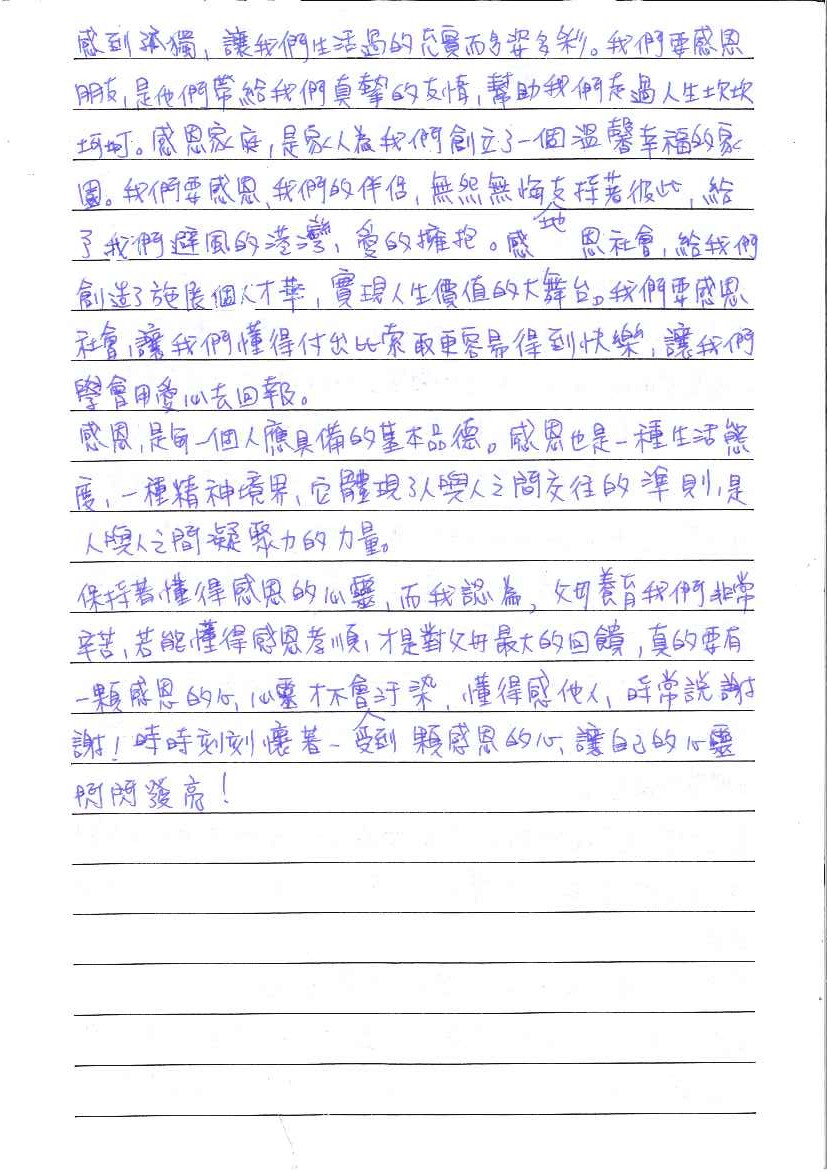 感到孤獨，讓我們生活過的充實而多姿多彩。我們要感恩
朋友，是他們帶給我們真摯的友情，幫助我們走過人生坎坎
坷坷。感恩家庭，是家人為我們創立了一個溫馨幸福的家
園。我們要感恩，我們的伴侶，無怨無悔地支持著彼此，給
了我們避風的港灣，愛的擁抱。感恩社會，給我們
創造了施展個人才華，實現人生價值的大舞台。我們要感恩
社會，讓我們懂得付出比索取更容易得到快樂，讓我們
學會用愛心去回報。
感恩，是每一個人應具備的基本品德。感恩也是一種生活態
度，一種精神境界，它體現了人與人之間交往的準則，是
人與人之間凝聚力的力量。
保持著懂得感恩的心靈，而我認為，父母養育我們非常
辛苦，若能懂得感恩孝順，才是對父母最大的回饋，真的要有
一顆感恩的心，心靈才不會受到汙染，懂得感他人，時常說謝
謝！時時刻刻懷著一顆感恩的心，讓自己的心靈
閃閃發亮！